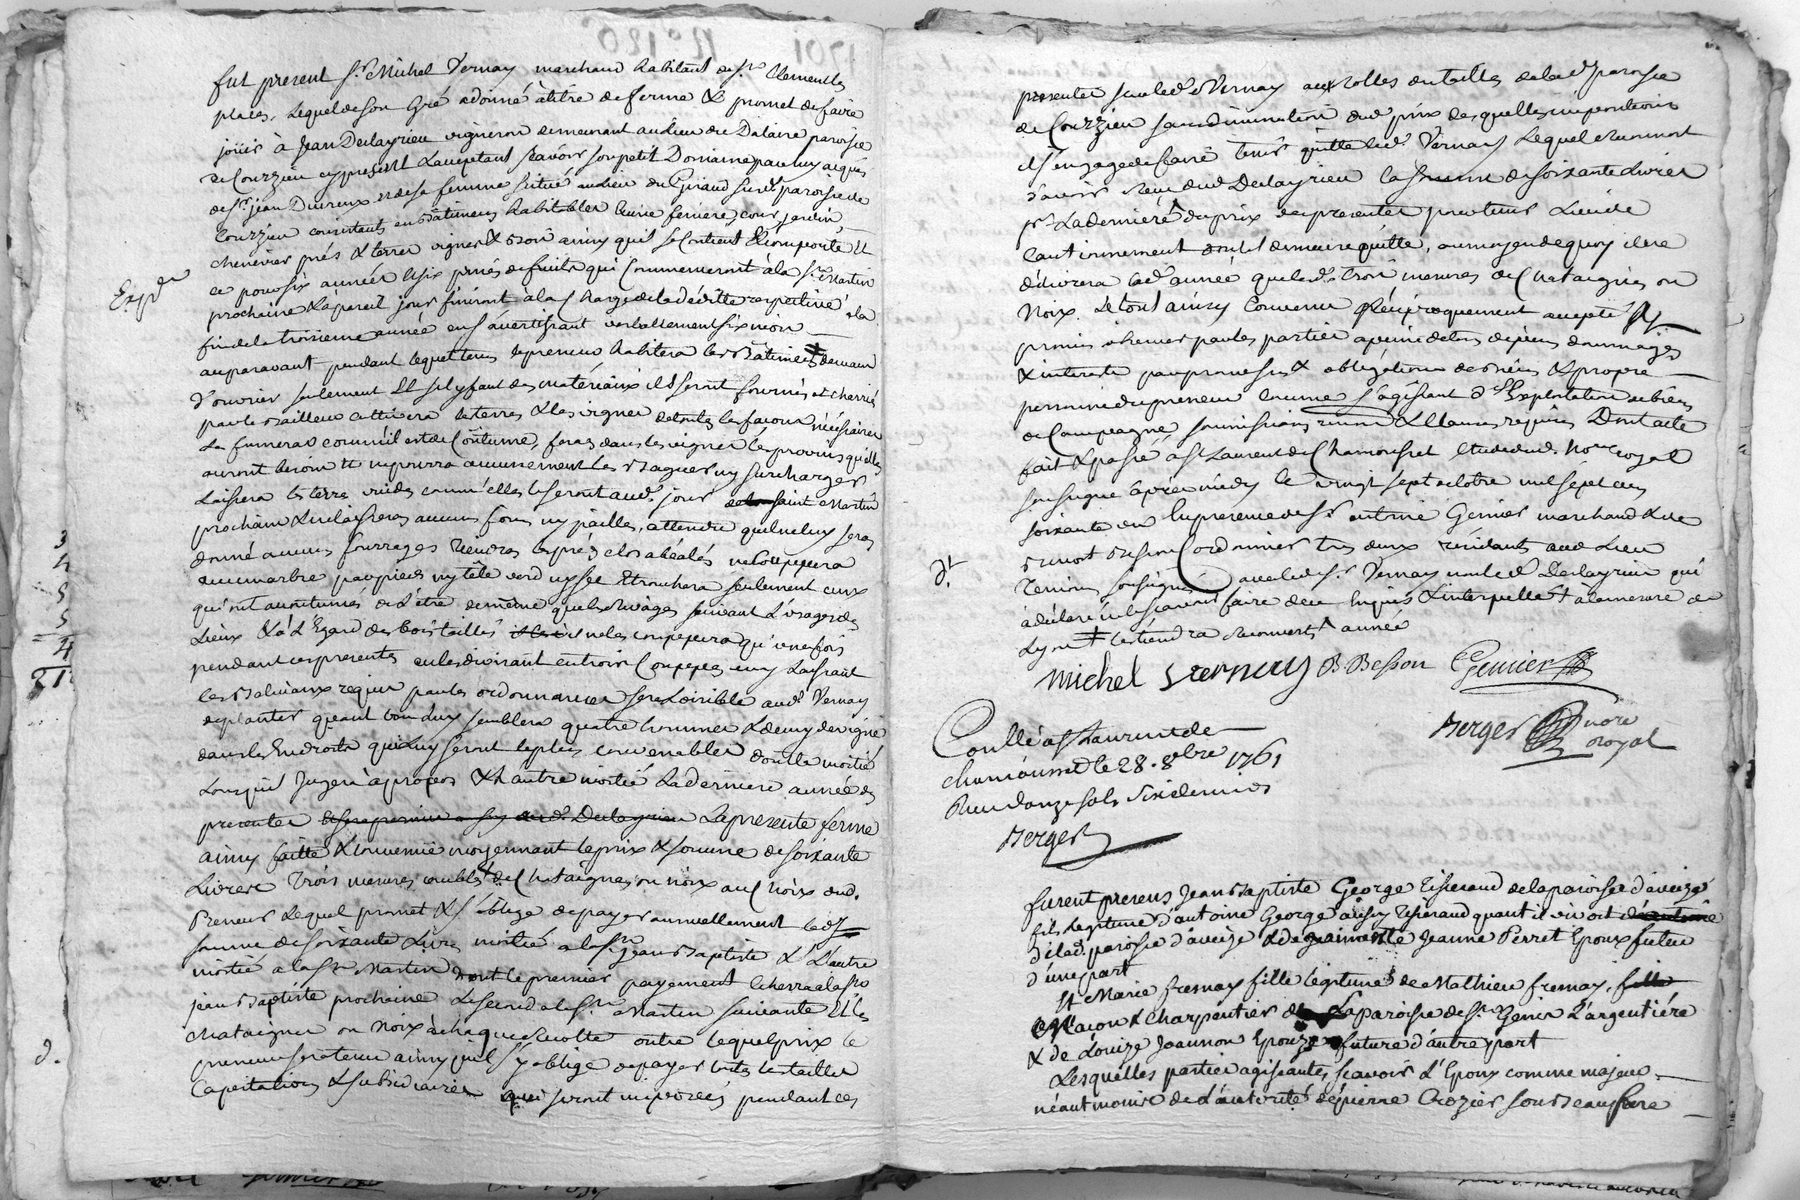 fut present Sr. Michel Vernay marchand habitant de St. Clement les
places, lequel de son gré a donné à titre de ferme & promet de faire
joüir à Jean Declayrieu vigneron demeurant au lieu de Dalaire paroisse
de Courzieu cy present & acceptant scavoir son petit Domaine par luy acquis
de Sr. jean Duireux et de sa femme scitué au lieu du Giraud susd. paroisse de
Courzieu consistants en Bâtimens habitables Cuvier feniere, cour, jardin
cheneviers prés & terres vignes & Bois ainsy qu'il se Contient & Comporte Et
ce pour six années & six prises de fruits qui Commenceront à la St. Martin
prochaine & à pareil jour finiront à la Charge de la déditte respective à la
fin de la troisieme année en s'avertissant verbalement six mois
auparavant pendant lequel tems le preneur habitera les Bâtiments
d'ouvrier seulement Et s'il y faut des matériaux ils seront fournis et charriés
par le Bailleur cultivera les terres & les vignes de toutes les façons nécéssaires
La fumeras comm'il est de Coûtume, feras dans les vignes les provins qu'elles
auront besoin et ne pourra aucunement les ny surcharger
Laissera les terres vuides comm'elles le seront aud. jour de la saint Martin
prochain & ne laissera aucuns foins ny pailles, attendu qu'il ne luy sera
donné aucuns fourrages Tiendra les prés clos abéalés ne Couppera
aucun arbre par pied ny tête verd ny sec Ebranchera seulement ceux
qui ont acoutumés de l'être de même que les suivant l'usage des
Lieux & à L'Egard des bois taillis il ne les couppera qu'une fois
pendant ces presentes en les divisant en trois Couppes en y Laissant
les Baliveaux requis par les ordonnances sera Loisible aud. Vernay
de planter quand bon luy semblera quatre hommes & demy de vigne
dans les Endroits qui luy seront les plus convenables dont la moitié
Lorsqu'il Jugera àpropos & l'autre moitié La derniere année des
presentes La presente ferme
ainsy faitte & convenüe moyennant le prix & somme de soixante
Livres & Trois mesures combles de Chataignes ou noix au Choix dud.
Preneur Lequel promet & s'oblige de payer annuellement lad.
somme de soixante Livres moitié a la St. jean Baptiste & L'autre
moitié a la St. Martin dont le premier payement écherra a la St.
jean Baptiste prochaine Le second a la St. Martin suivante Et les
chataignes ou Noix à chaque Recolte outre lequel prix le
preneur sera tenu ainsy qu'il s'y oblige de payer toutes les tailles
Capitations & subsidiaires qui seront imposées pendant ces
Expd.
d.
presentes sur led. Sr. Vernay aux rolles des tailles de lad. paroisse
de Courzieu sans diminution dud. prix desquelles impositions
il s'engage de faire tenir quitte led. Sr. Vernay Lequel reconnoit
d'avoir Reçu dud. Declayrieu la somme de soixante Livres
pr. La derniere du prix des presentes pour tenir Lieu de
Cautionnement dont il demeure quitte, au moyen de quoy il ne
délivrera lad. année que lesd. trois mesures de Chataignes ou
Noix. Le tout ainsy Convenu Réciproquement accepté
promis observer par les parties a peine de tous dépens dommages
& interests par promesses & obligations de biens & propre
personne du preneur comme s'agissant d'Exploitation de biens
de Campagne soumissions renon. & Clauses requises Dont acte
fait & passé à St. Laurent de Chamousset Etude du Nore. royal
soussigné après midy le vingt sept octobre mil sept cens
soixante un En presence de Sr. antoine Genier marchand & de
Benoit Besson Cordonnier tous deux résidants aud. Lieu
Temoins soussignés avec led. Sr. Vernay non led. Declayrieu qui
à déclaré ne le sçavoir faire de ce Enquis & interpellé à la mesure de
Lyon
année
dt.
Michel vernay B. Besson Genier
Berger nore
royal
Conllé a St Laurent de
chamousset le 28. 8bre 1761
Reçu Douze sols Six deniers
Berger
furent presens Jean Baptiste George Tisserand de la paroisse d'aveize
fils légitime d'antoine George aussy Tisserand quant il vivoit
de lad. paroisse d'aveize & de Jeanne Perret Epoux futur
d'une part
Et Marie fresnay fille légitime de Mathieu fresnay, fille
Maçon & charpentier de La paroisse de St. Genis L'argentiére
& de Loüize Joannon Epouze future d'autre part
Lesquelles parties agissantes, scavoir L'Epoux comme majeur
néantmoins de l'autorité de pierre Crozier son Beaufrere